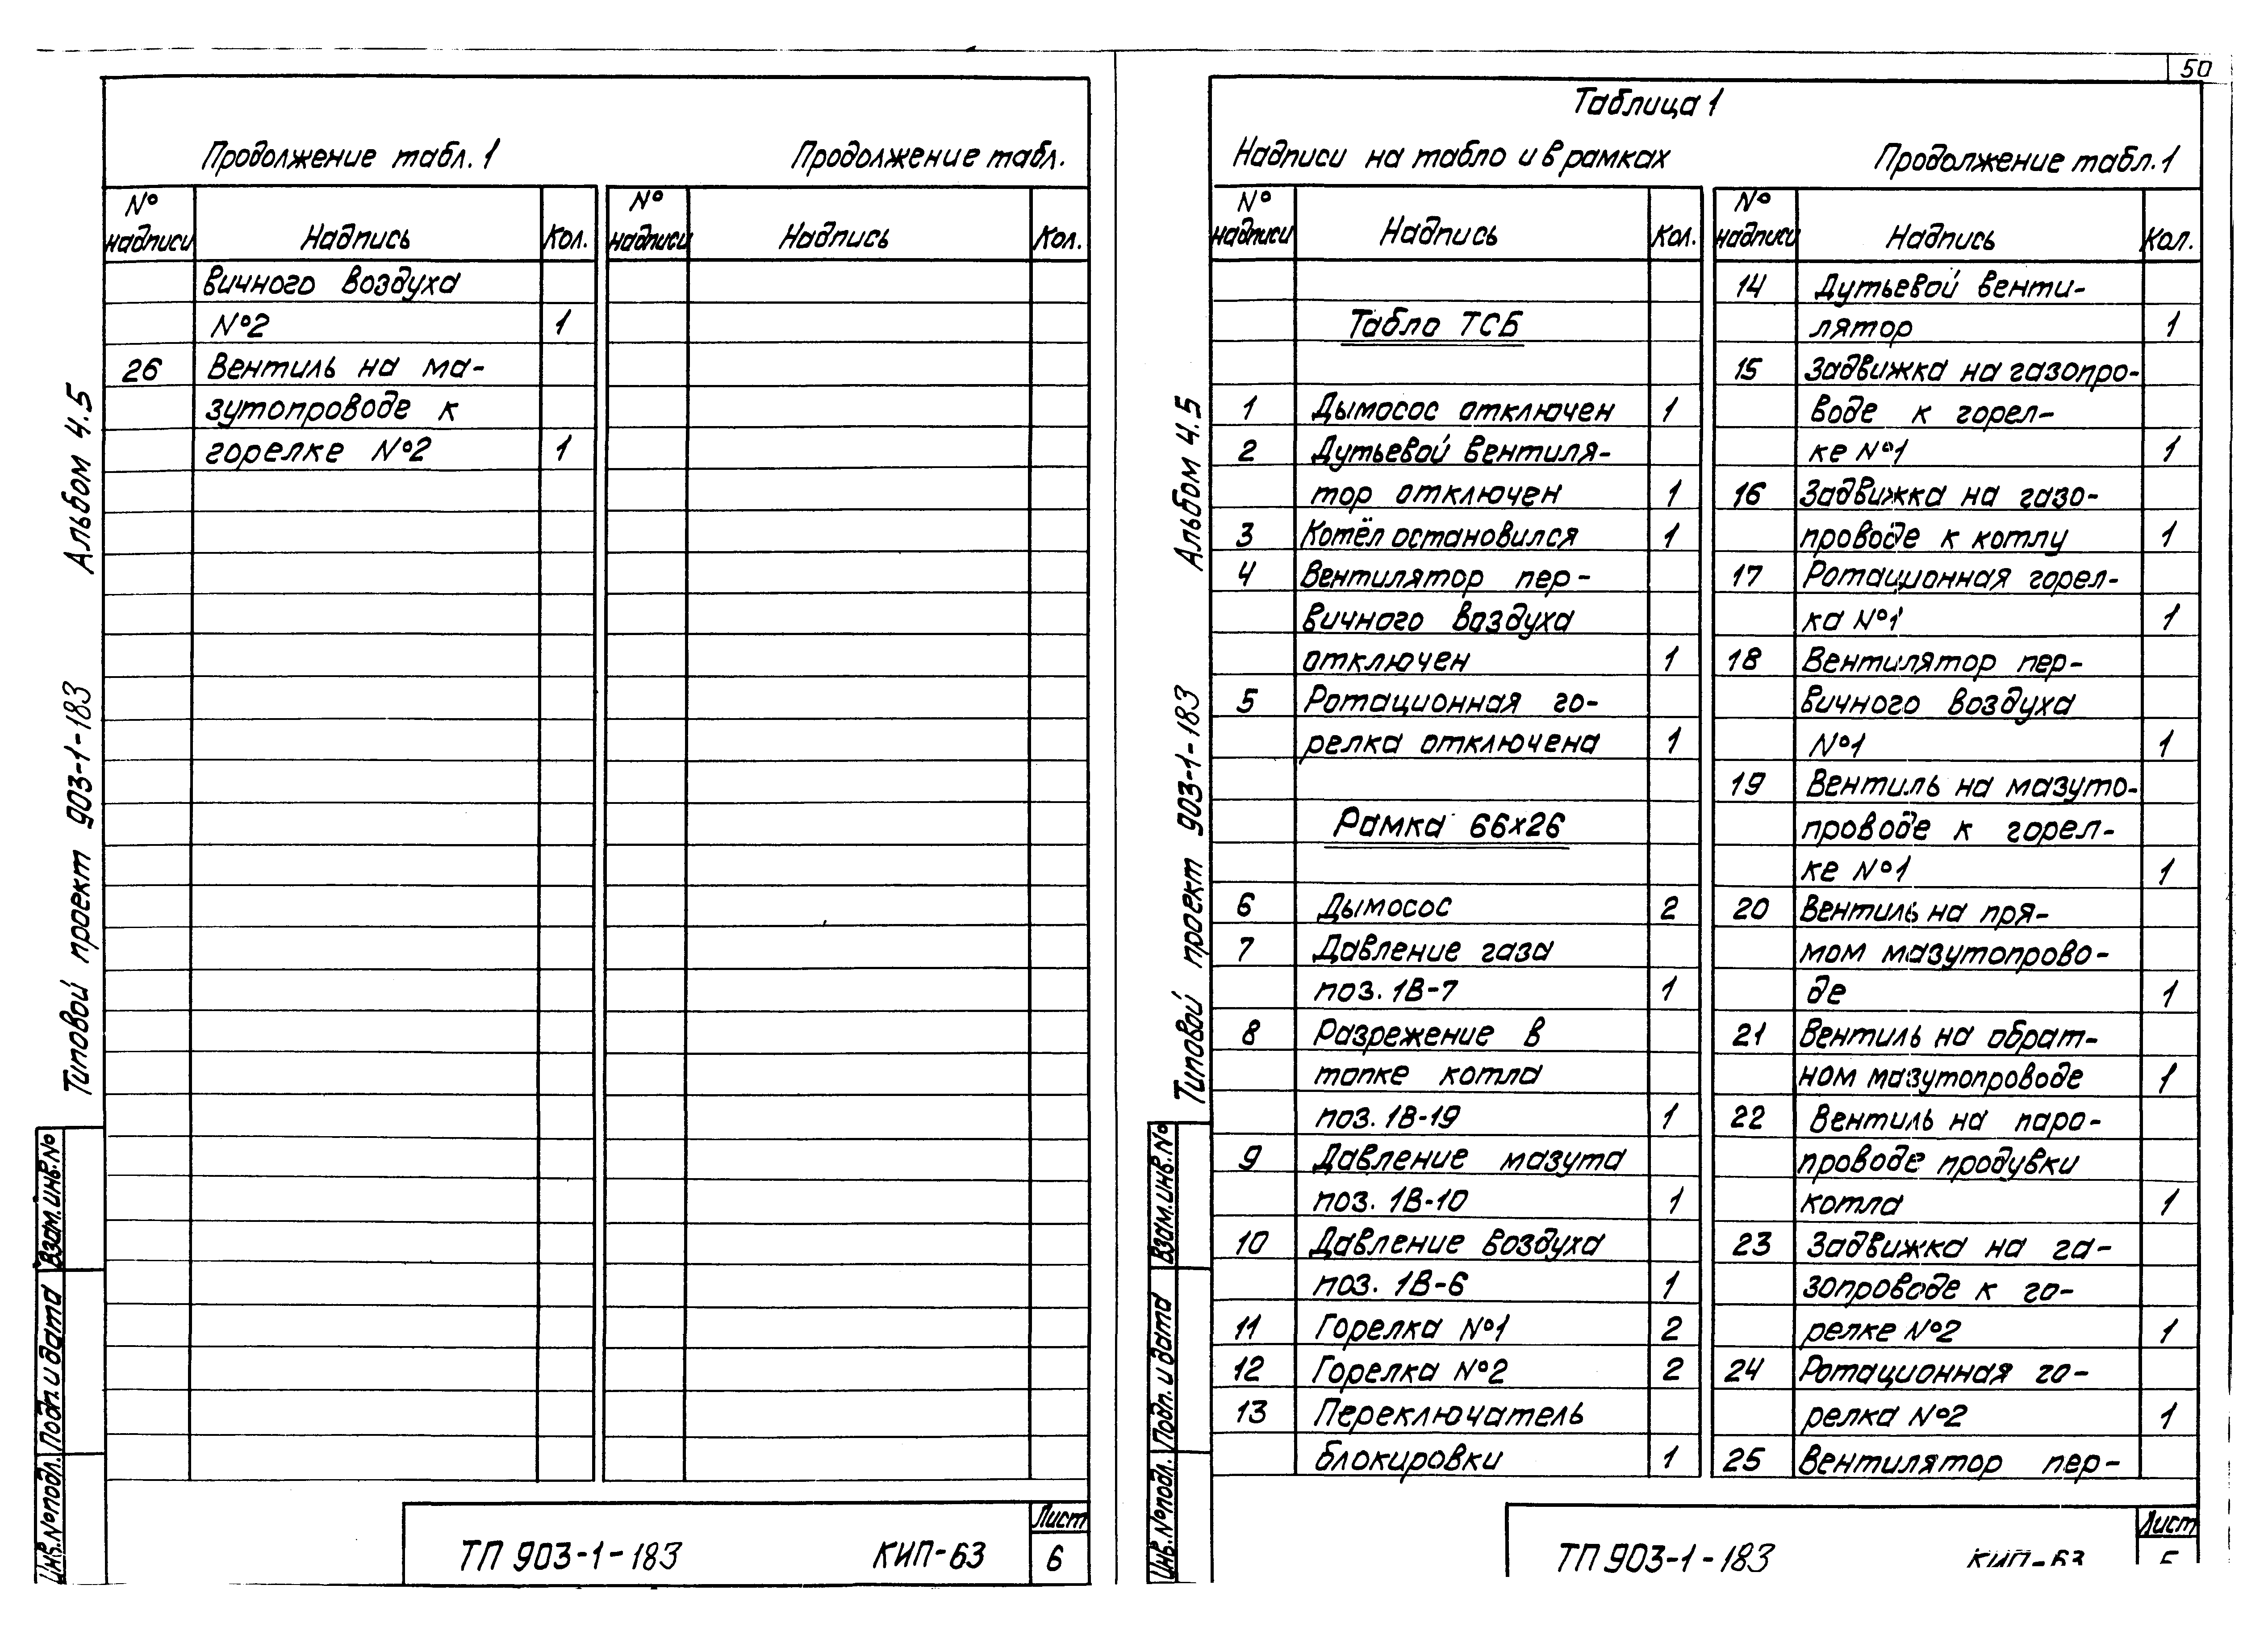 50
Продолжение табл. 1
Продолжение табл.
№ надписи Надпись Кол.
№ надписи Надпись Кол.
вичного воздуха
№2 1
26 Вентиль на ма-
зутопроводе к
горелке №2 1
Альбом 4.5
Типовой проект 903-1-183
Взам.инв.№
Подп. и дата
Инв.№подл.
ТП 903-1-183 КИП-63
Лист
6
Таблица 1
Надписи на табло и в рамках
Продолжение табл.1
№ надписи Надпись Кол.
Табло ТСБ
1 Дымосос отключен 1
2 Дутьевой вентиля-
тор отключен 1
3 Котёл остановился 1
4 Вентилятор пер-
вичного воздуха
отключен 1
5 Ротационная го-
релка отключена 1
Рамка 66х26
6 Дымосос 2
7 Давление газа
поз. 1В-7 1
8 Разрежение в
топке котла
поз. 1В-19 1
9 Давление мазута
поз. 1В-10 1
10 Давление воздуха
поз. 1В-6 1
11 Горелка №1 2
12 Горелка №2 2
13 Переключатель
блокировки 1
№ надписи Надпись Кол.
14 Дутьевой венти-
лятор 1
15 Задвижка на газопро-
воде к горел-
ке №1 1
16 Задвижка на газо-
проводе к котлу 1
17 Ротационная горел-
ка №1 1
18 Вентилятор пер-
вичного воздуха
№1 1
19 Вентиль на мазуто-
проводе к горел-
ке №1 1
20 Вентиль на пря-
мом мазутопрово-
де 1
21 Вентиль на обрат-
ном мазутопроводе 1
22 Вентиль на паро-
проводе продувки
котла 1
23 Задвижка на га-
зопроводе к го-
релке №2 1
24 Ротационная го-
релка №2 1
25 Вентилятор пер-
Альбом 4.5
Типовой проект 903-1-183
Взам.инв.№
Подп. и дата
Инв.№подл.
ТП 903-1-183 КИП-63
Лист
5